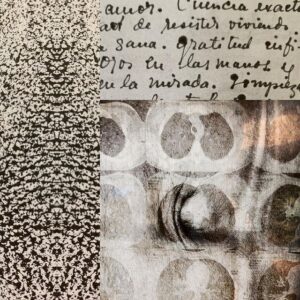 amor. Ciencia exacta
de resistir viviendo
sana. Gratitud infi
ojos en las manos y
en la mirada. Limpieza